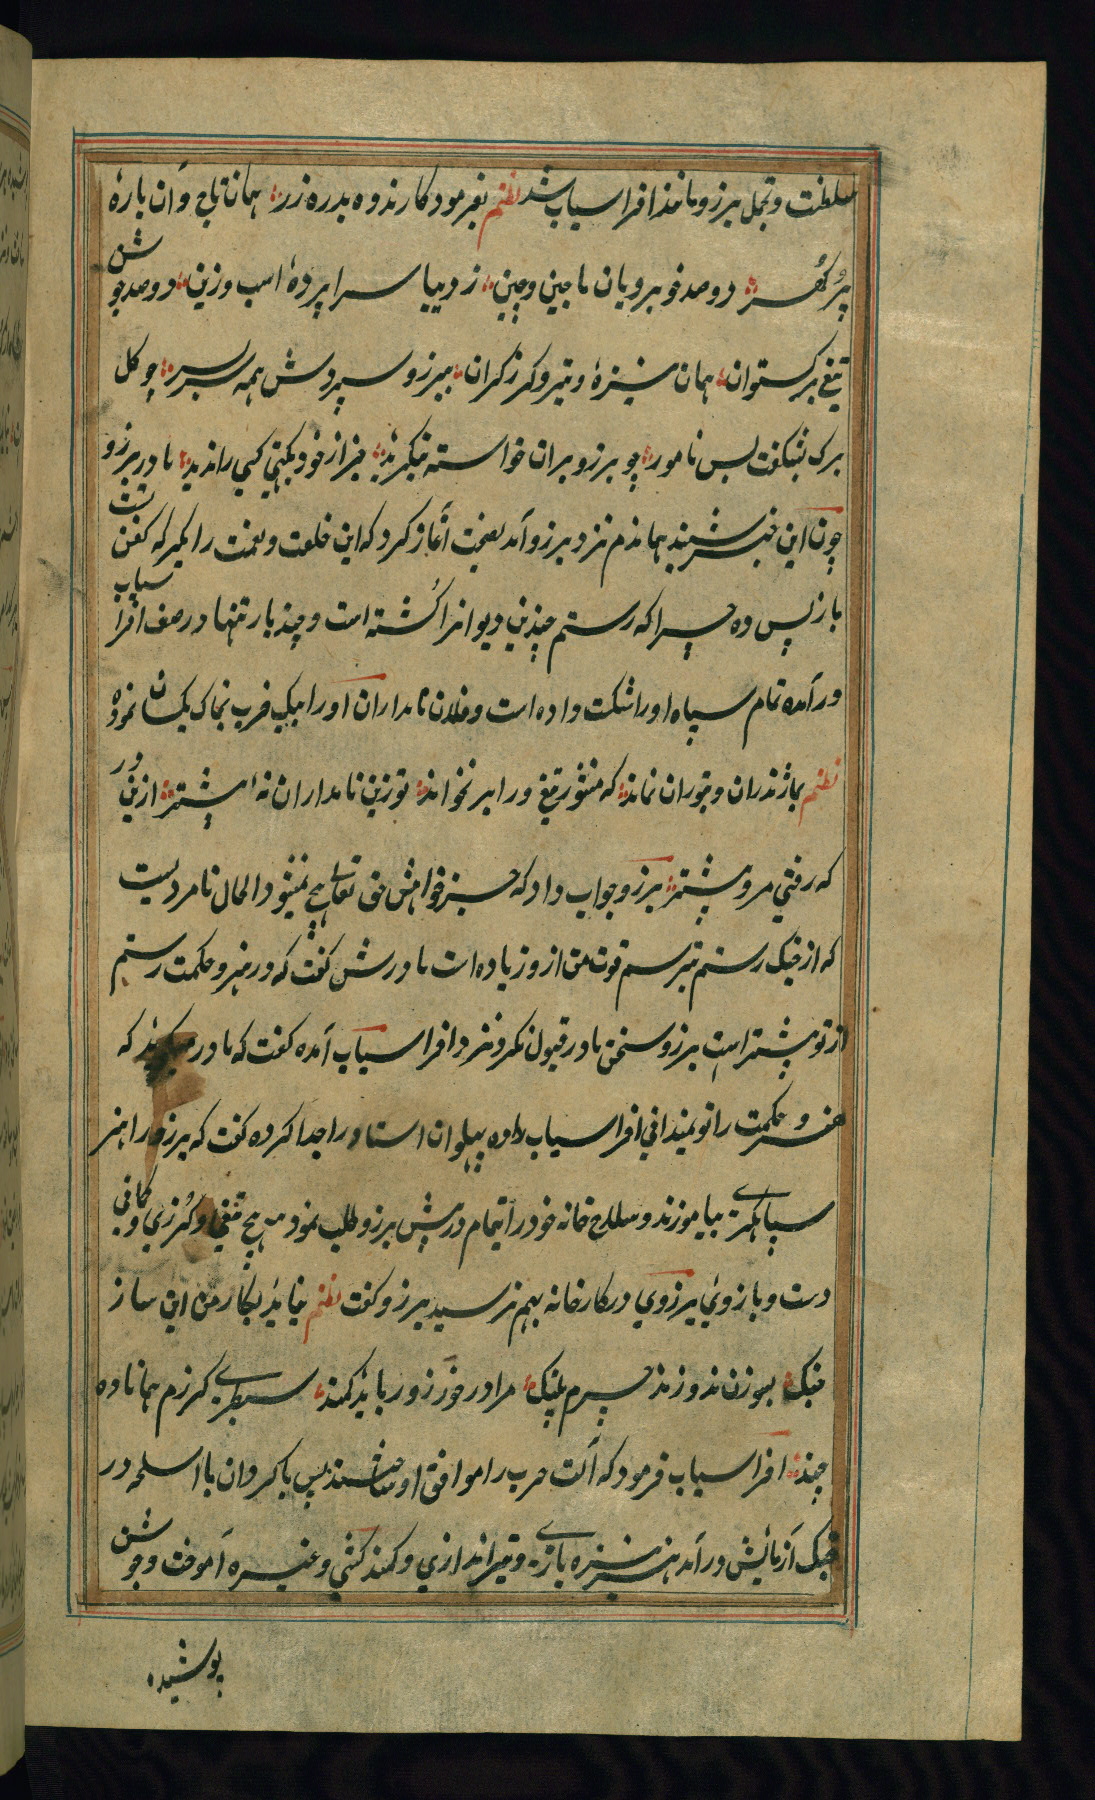 سلطنت و تجمل برزو مانند افراسیاب شد نظم بفرمود کارند ده بدره زر همان تاج و آن یارهٔ
پر گهر دو صد خوبرویان ماچین و چین ز دیبا سراپردهٔ اسب و زین دو صد جوشن
تیغ برکستوان همان نیزهٔ و تیر و کرز کران ببرزو سپردش همه سربسر چو کل
برک بشکفت بس نامور چو برزو بران خواسته بنکرید خبر از خود بکیتی کسی را ندید مادر برزو
چون این خبر شنید هماندم نزد برزو آمد نصیحت آغاز کرد که این خلعت و نعمت را مکیر که کفن تست
باز پس ده چرا که رستم چندین دیوانرا کُشته است و چند بار تنها در صف افراسیاب
در آمده تمام سپاه او را شکست داده است و فلان نامداران او را بیک ضرب بخاک یکسان نموده
نظم بماژندران و بتوران نماند که منشور تیغ ورا بر نخواند تو زین نامداران نهٔ پیشتر ازین در
که رفتی مرو پیشتر برزو جواب داد که جز خواهش حق تعالی هیچ نمیشود الحال نامردیست
که از جنک رستم بترسم قوت من از و زیاده است مادرش کفت که در هنر و حکمت رستم
از تو پیشتر است برزو سخن مادر قبول نکرد نزد افراسیاب آمده کفت که مادر میکوید که
هنر و حکمت را تو نمیدانی افراسیاب ده پهلوان استاد را جدا کرده کفت که برزو را هنر
سپاهکری بیاموزند و سلاح خانه خود را تمام در پیش برزو طلب نمود هیچ تیغی و کُرزی و کمانی
دست و بازوی برزوی در کارخانه بهم نرسید برزو کفت نظم نیاید بکار من این ساز
جنک بسوزن ندوزند چرم پلنک مرا در خور زور باید کمند سطبری کرزم همانا ده
چند افراسیاب فرمود که آلت حرب را موافق او ساختند پس با کردان با اسلحه در
جنک آزمایش در آمد هنر نیزه بازی و تیر اندازی و کمند کشی و غیره آموخت و جوشن
پوشیده